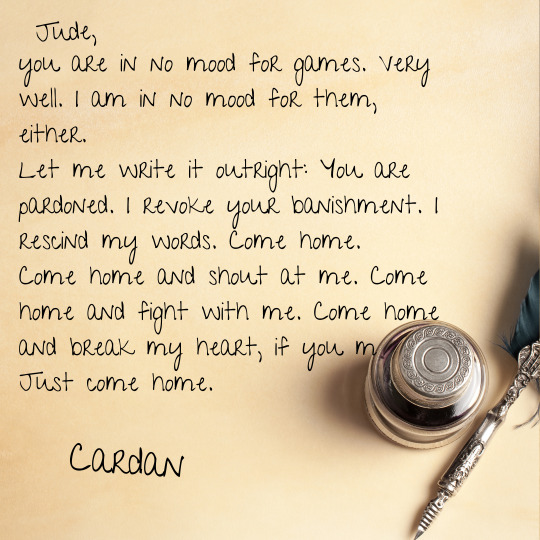 Jude,
you are in no mood for games. Very
well. I am in no mood for them,
either.
Let me write it outright: You are
pardoned. I revoke your banishment. I
rescind my words. Come home.
Come home and shout at me. Come
home and fight with me. Come home
and break my heart, if you
Just come home.
Cardan